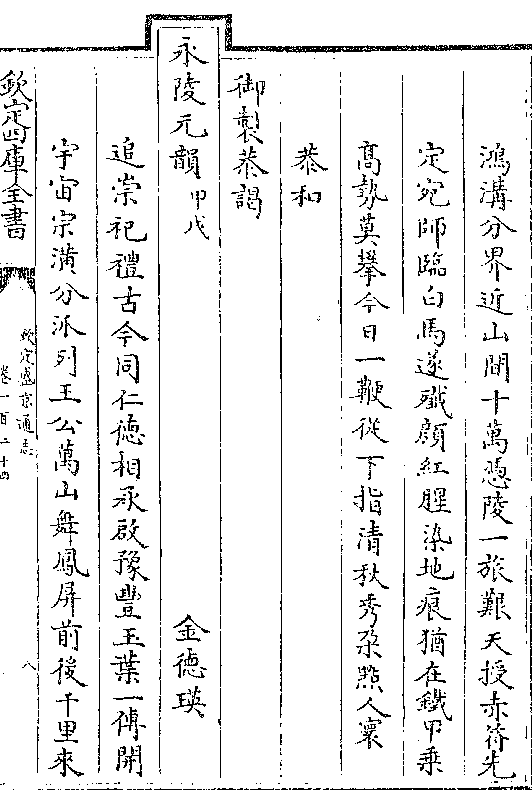 鴻溝分界近山間十萬憑陵一旅艱天授赤符先
定宛師臨白馬遂殲顔紅腥染地痕猶在鐵甲乗
髙勢莫攀今日一鞭從下指清秋秀朶㸃人寰
恭和
御製恭謁
永陵元韻甲戌 金徳瑛
追崇祀禮古今同仁徳相承啟豫豐玉葉一傳開
宇宙宗潢分派列王公萬山舞鳳屏前後千里來
欽定四庫全書
欽定盛京通志
卷一百二十四
八